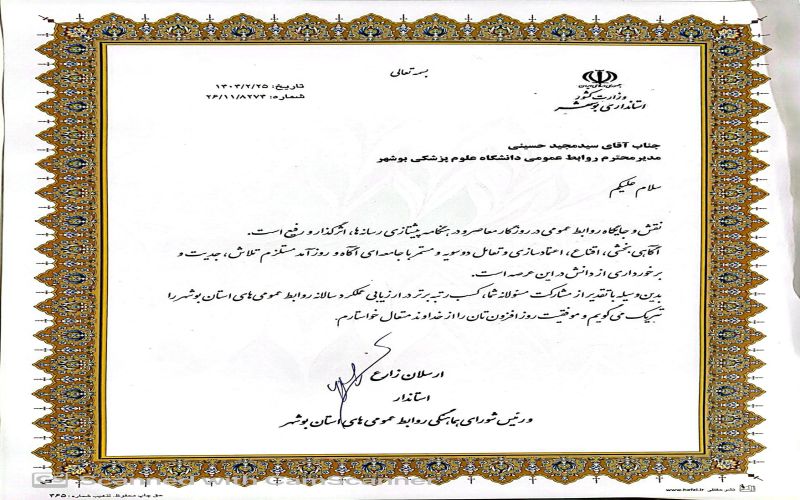 بسمه تعالی
جمهوری اسلامی ایران
وزارت کشور
استانداری بوشهر
تاریخ: ۱۴۰۳/۲/۲۵
شماره: ۲۶/۱۱/۸۲۷۴
جناب آقای سیدمجید حسینی
مدیر محترم روابط عمومی دانشگاه علوم پزشکی بوشهر
سلام علیکم
نقش و جایگاه روابط عمومی در روزگار معاصر و در هنگامه پیشتازی رسانه‌ها، اثرگذار و رفیع است.
آگاهی بخشی، اقناع، اعتمادسازی و تعامل دوسویه و مستمر با جامعه ای آگاه و روزآمد مستلزم تلاش، جدیت و
برخورداری از دانش در این عرصه است.
بدین وسیله با تقدیر از مشارکت مسئولانه شما، کسب رتبه برتر در ارزیابی عملکرد سالانه روابط عمومی های استان بوشهر را
تبریک می گویم و موفقیت روز افزون تان را از خداوند متعال خواستارم.
ارسلان زارع
استاندار
و رئیس شورای هماهنگی روابط عمومی های استان بوشهر
Scanned with CamScanner
حق چاپ محفوظ. تذهیب شماره: ۳۶۵
www.hafzi.ir